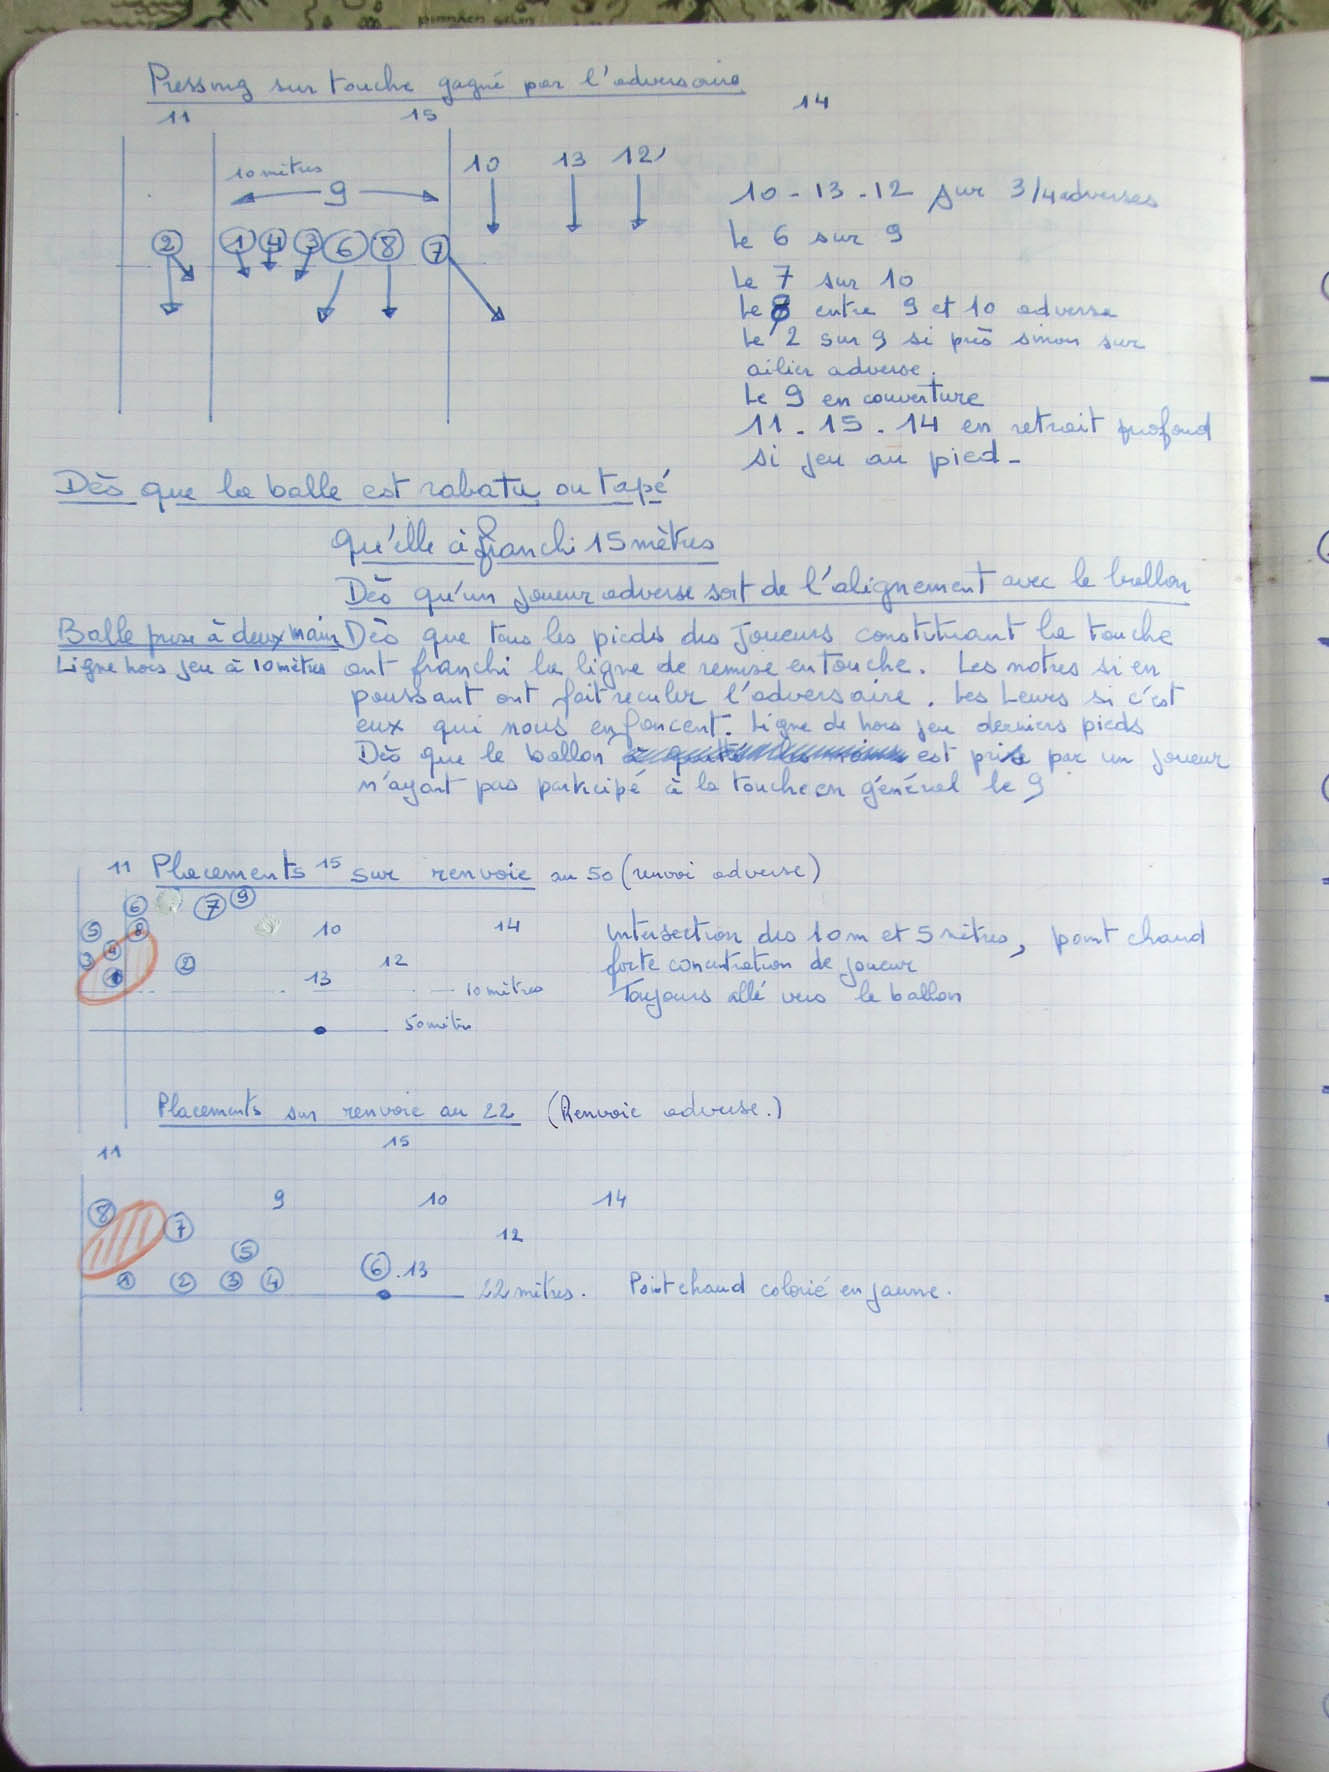 Pressing sur touche gagné par l'adversaire
11 15 14
10 mètres 9 10 13 12
2 1 4 3 6 8 7
10 - 13 - 12 sur 3/4 adverses
Le 6 sur 9
Le 7 sur 10
Le 8 entre 9 et 10 adverse
Le 2 sur 9 si près sinon sur
ailier adverse.
Le 9 en couverture
11 - 15 - 14 en retrait profond
si jeu au pied -
Dès que la balle est rabatu ou tapé
Qu'elle à franchi 15 mètres
Dès qu'un joueur adverse sort de l'alignement avec le ballon
Balle prise à deux main
Ligne hors jeu à 10 mètres
Dès que tous les pieds des Joueurs constituant la touche
ont franchi la ligne de remise en touche. Les notres si en
poussant ont fait reculer l'adversaire. Les Leurs si c'est
eux qui nous enfoncent. Ligne de hors jeu derniers pieds
Dès que le ballon est prise par un joueur
n'ayant pas participé à la touche en général le 9
11 Placements 15 sur renvoie au 50 (renvoi adverse)
6 7 9
5 8 10 14
3 4 2 12
1 13
10 mètres
50 mètres
Intersection des 10m et 5 mètres, point chaud
forte concentration de joueur
Toujours allé vers le ballon
Placements sur renvoie au 22 (Renvoie adverse.)
11 15
8 9 10 14
7 12
5
1 2 3 4 6 . 13
22 mètres. Point chaud colorié en jaune.